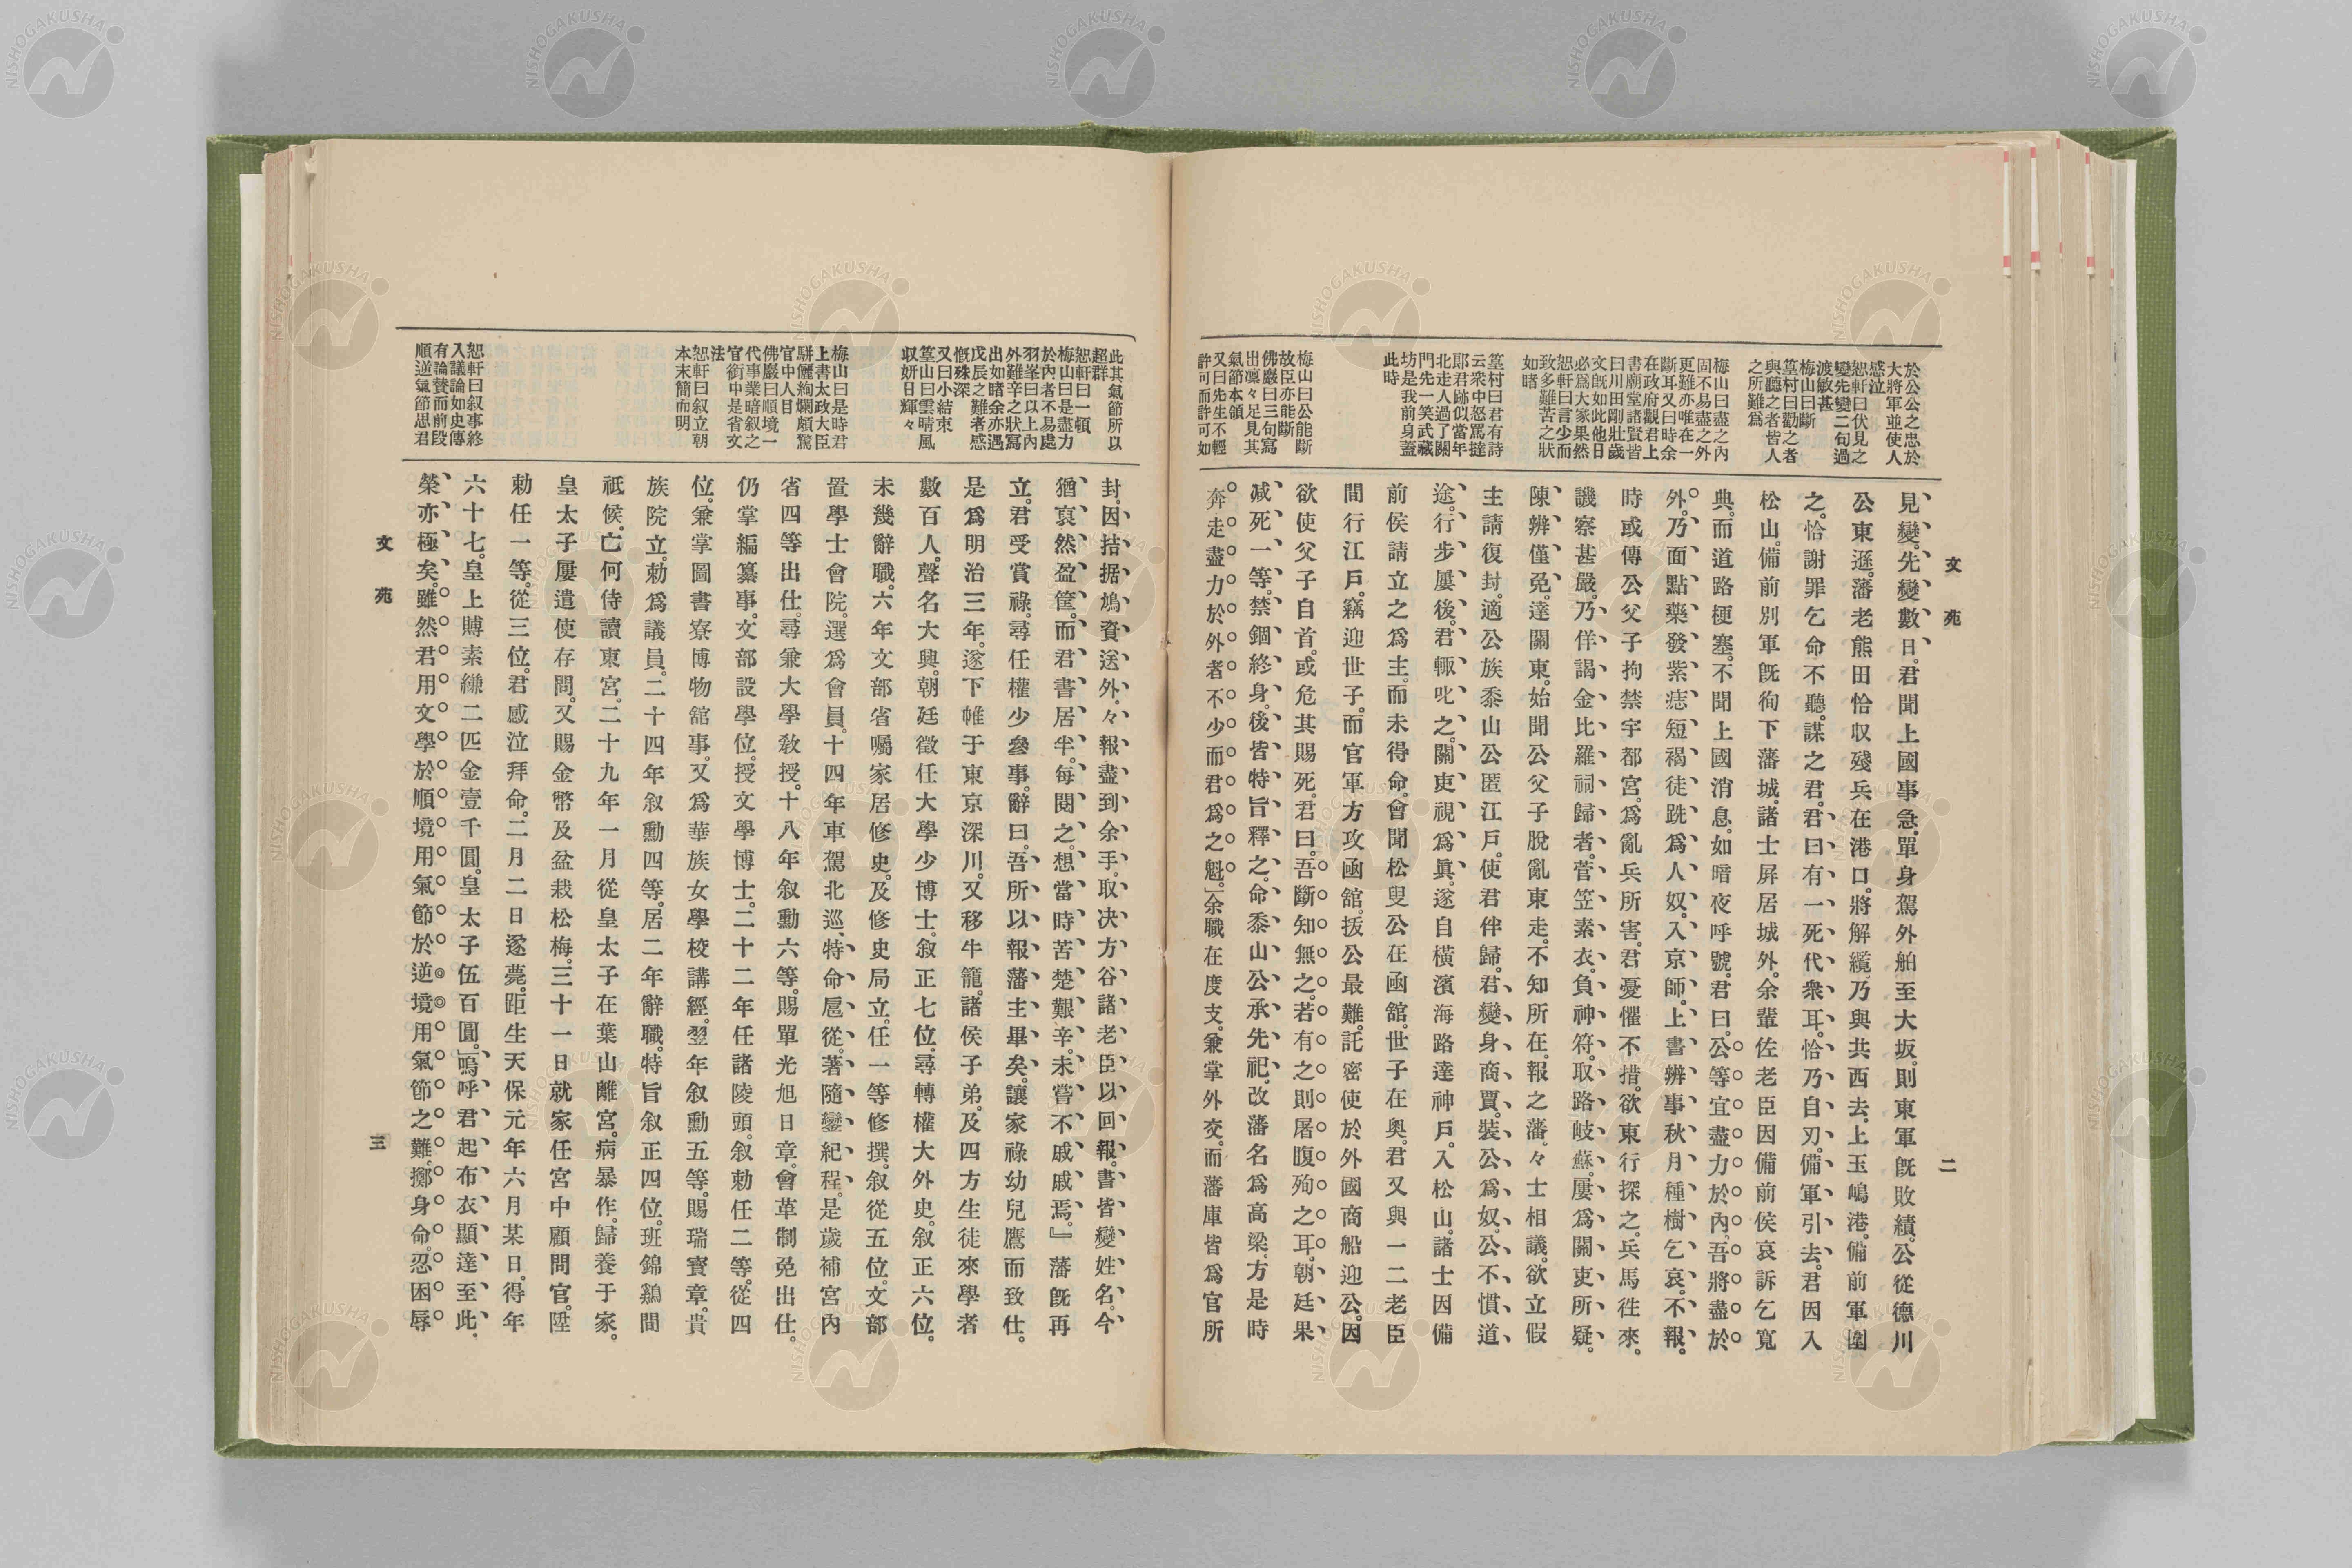 文苑
二
於公公之忠於
大將軍並使人
感泣
恕軒曰伏見之
變先變二句過
渡敏甚
梅山曰斷
篁村曰勸之者
與聽之者皆人
之所難爲
梅山曰盡之內
固不易盡之外
更難亦唯在一
斷耳又曰時余
在政府觀君上
書廟堂諸賢皆
曰川田剛壯歲
文旣如此他日
必爲大家果然
恕軒曰言少而
致多難苦之狀
如睹
篁村曰君有詩
云衆中怒罵撻
郎君跡似當年
北走人過了關
門先一笑武藏
坊是我前身蓋
此時
梅山曰公能斷
故臣亦能斷
佛巖曰三句寫
出凜々足見其
氣節本領
又曰先生不輕
許可而許可如
見變。先變數日。君聞上國事急。單身駕外舶至大坂。則東軍旣敗績。公從德川
公東遜。藩老熊田恰収殘兵在港口。將解纜。乃與共西去。上玉嶋港。備前軍圍
之。恰謝罪乞命不聽。謀之君。君曰有一死代衆耳。恰乃自刃。備軍引去。君因入
松山。備前別軍旣徇下藩城。諸士屏居城外。余輩佐老臣因備前侯哀訴乞寬
典。而道路梗塞。不聞上國消息。如暗夜呼號。君曰。公等宜盡力於內。吾將盡於
外。乃面點藥發紫痣。短褐徒跣爲人奴。入京師。上書辨事秋月種樹乞哀。不報。
時或傳公父子拘禁宇都宮。爲亂兵所害。君憂懼不措。欲東行探之。兵馬徃來。
譏察甚嚴。乃佯謁金比羅祠歸者。菅笠素衣。負神符。取路岐蘇。屢爲關吏所疑。
陳辨僅免。達關東。始聞公父子脫亂東走。不知所在。報之藩。々士相議。欲立假
主請復封。適公族黍山公匿江戶。使君伴歸。君變身商賈裝。公爲奴。公不慣道
途。行步屢後。君輙叱之。關吏視爲眞。遂自橫濱海路達神戶。入松山。諸士因備
前侯請立之爲主。而未得命。會聞松叟公在函舘。世子在奥。君又與一二老臣
間行江戶。竊迎世子。而官軍方攻函舘。拔公最難。託密使於外國商船迎公。因
欲使父子自首。或危其賜死。君曰。吾斷知無之。若有之則屠腹殉之耳。朝廷果
减死一等。禁錮終身。後皆特旨釋之。命黍山公承先祀。改藩名爲高梁。方是時
奔走盡力於外者不少而君爲之魁。」余職在度支。兼掌外交。而藩庫皆爲官所
此其氣節所以
超群
恕軒曰一頓
梅山曰是盡力
於內者不易處
羽峯曰以上內
外難辛之狀寫
出如睹余亦遇
戊辰之難者感
慨殊深
又曰小結束
篁山曰雲晴風
収妍日輝々
梅山曰是時君
上書太政大臣
駢儷絢爛頗驚
官中人目
佛巖曰順境一
代事業暗叙之
官銜中是省文
法
恕軒曰叙立朝
本末簡而明
恕軒曰叙事終
入議論如史傳
有論贊而前段
順逆氣節思君
封。因拮据鳩資送外。々報盡到余手。取决方谷諸老臣以回報。書皆變姓名。今
猶哀然盈筐。而君書居半。每閱之。想當時苦楚艱辛。未嘗不戚戚焉。』藩旣再
立。君受賞祿。尋任權少參事。辭曰。吾所以報藩主畢矣。讓家祿幼兒鷹而致仕。
是爲明治三年。遂下帷于東京深川。又移牛籠。諸侯子弟。及四方生徒來學者
數百人。聲名大興。朝廷徵任大學少博士。叙正七位。尋轉權大外史。叙正六位。
未幾辭職。六年文部省囑家居修史。及修史局立。任一等修撰。叙從五位。文部
置學士會院。選爲會員。十四年車駕北巡。特命扈從。著隨鑾紀程。是歲補宮內
省四等出仕。尋兼大學敎授。十八年叙勳六等。賜單光旭日章。會革制免出仕。
仍掌編纂事。文部設學位。授文學博士。二十二年任諸陵頭。叙勅任二等。從四
位。兼掌圖書寮博物舘事。又爲華族女學校講經。翌年叙勳五等。賜瑞寶章。貴
族院立。勅爲議員。二十四年叙勳四等。居二年辭職。特旨叙正四位。班錦鷄間
祇候。亡何侍讀東宮。二十九年一月從皇太子在葉山離宮。病暴作。歸養于家。
皇太子屢遣使存問。又賜金幣及盆栽松梅。三十一日就家任宮中顧問官。陞
勅任一等。從三位。君感泣拜命。二月二日遂薨。距生天保元年六月某日。得年
六十七。皇上賻素縑二匹金壹千圓。皇太子伍百圓。」嗚呼君起布衣顯達至此、
榮亦極矣。雖然君用文學於順境用氣節於逆境用氣節之難。擲身命。忍困辱
文苑
三